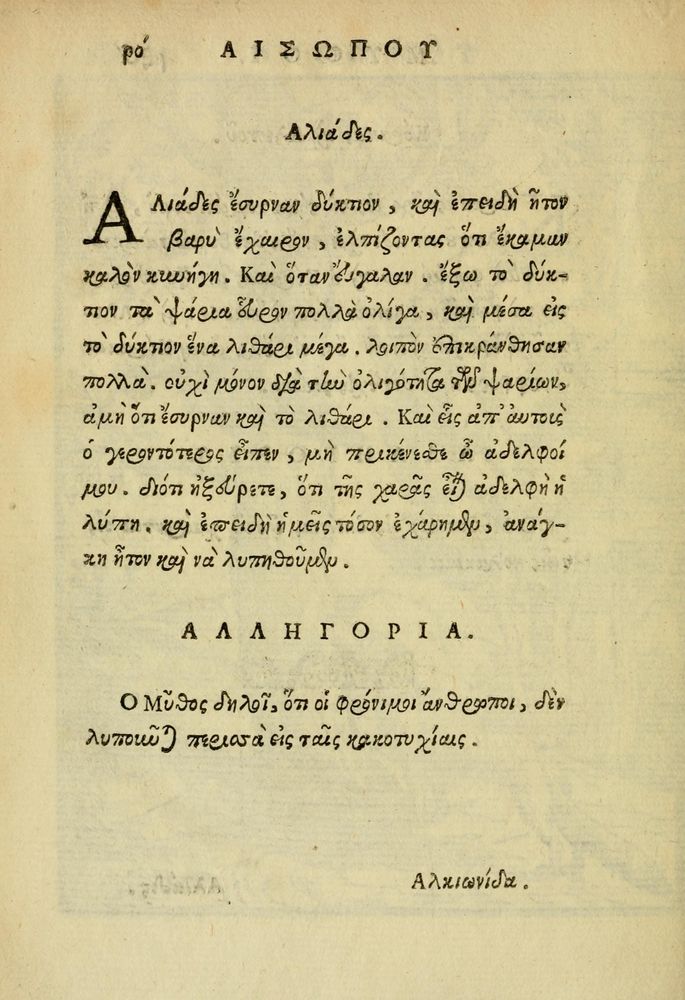 ρο´ ΑΙΣΩΠΟΥ
Αλιάδες.
ΑΛιάδες ἔσυρναν δύκτιον, καὶ ἐπειδὴ ἦτον
βαρὺ ἔχαιρον, ἐλπίζοντας ὅτι ἔκαμαν
καλὸν κυνήγη. Καὶ ὅταν ἔυγαλαν. ἔξω τὸ δύκ-
τιον τὰ ψάρια ηὗρον πολλὰ ὀλίγα, καὶ μέσα εἰς
τὸ δύκτιον ἕνα λιθάρι μέγα. λοιπὸν ἐπικράνθησαν
πολλὰ. οὐχὶ μόνον διὰ τὴν ὀλιγότητα τῶν ψαρίων,
ἀμὴ ὅτι ἔσυρναν καὶ τὸ λιθάρι. Καὶ εἷς ἀπ' ἀυτοὺς
ὁ γεροντότερος εἶπεν, μὴ πρικένεσθε ὦ ἀδελφοί
μου. διότι ἠξεύρετε, ὅτι τῆς χαρᾶς εἶναι ἀδελφὴ ἡ
λύπη. καὶ ἐπειδὴ ἡμεῖς τόσον ἐχάρημεν, ἀνάγ-
κη ἦτον καὶ νὰ λυπηθοῦμεν.
ΑΛΛΗΓΟΡΙΑ.
Ο Μῦθος δηλοῖ, ὅτι οἱ φρόνιμοι ἄνθρωποι, δὲν
λυποιῶνται περισσὰ εἰς ταῖς κακοτυχίαις.
Αλκιωνίδα.